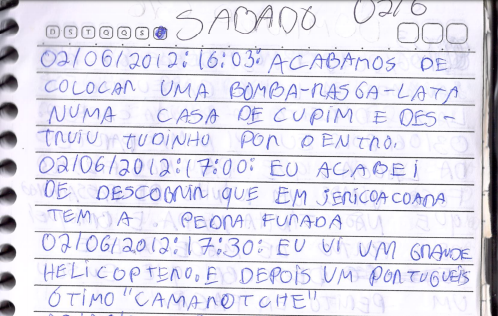 SABADO 02/6
D S T Q Q S S
02/06/2012:16:03: ACABAMOS DE
COLOCAR UMA BOMBA-RASGA-LATA
NUMA CASA DE CUPIM E DES-
TRUIU TUDINHO POR DENTRO.
02/06/2012:17:00: EU ACABEI
DE DESCOBRIR QUE EM JERICOACOARA
TEM A PEDRA FURADA
02/06/2012:17:30: EU VI UM GRANDE
HELICOPTERO. E DEPOIS UM PORTUGUÊIS
ÓTIMO "CAMAROTCHE"